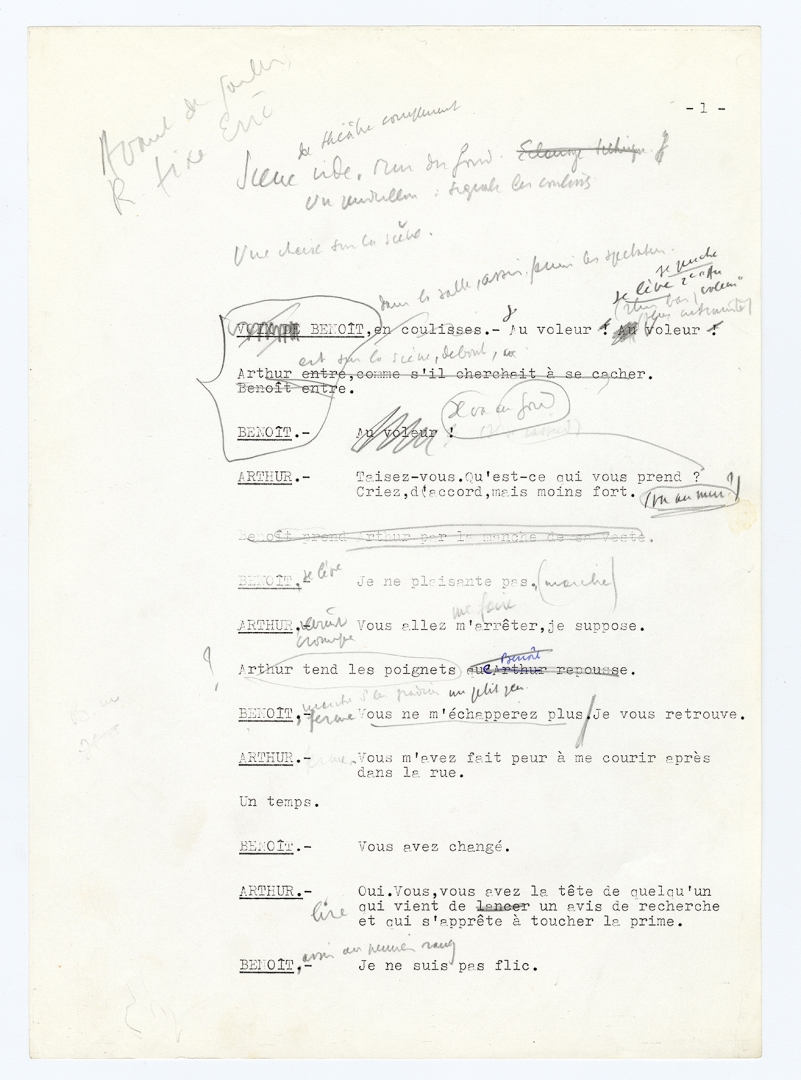 - 1 -
Avant de
R fixe Eric
de théâtre
Scène vide.
Une chaise sur la scène.
dans la salle, assis parmi les spectateurs.
se lève
BENOÎT, en coulisses.- Au voleur ! Au voleur !
est sur la scène, debout,
Arthur entre,comme s'il cherchait à se cacher.
Benoît entre.
BENOÎT.- Au voleur !
ARTHUR.- Taisez-vous.Qu'est-ce qui vous prend ?
Criez,d'accord,mais moins fort.
Benoît prend Arthur par la manche de sa veste.
BENOÎT, se lève Je ne plaisante pas. (marche)
me faire
ARTHUR, Vous allez m'arrêter,je suppose.
? Benoît
Arthur tend les poignets que Arthur repousse.
un petit peu
BENOÎT,- ferme Vous ne m'échapperez plus.Je vous retrouve.
ARTHUR.- Vous m'avez fait peur à me courir après
dans la rue.
Un temps.
BENOÎT.- Vous avez changé.
ARTHUR.- Oui.Vous,vous avez la tête de quelqu'un
qui vient de lancer un avis de recherche
lire
et qui s'apprête à toucher la prime.
assis au premier rang
BENOÎT,- Je ne suis pas flic.